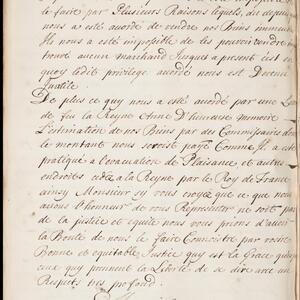 le faire par Plusieurs Raisons lequels, du depuis
nous a esté accordé de vendre nos Biens immeu
Il nous a esté impossible de les pouvoir vendre
trouvé aucun marchand Jusques a present c'est en
quoy ledit privilege accordé nous est Devenu
Inutile
De plus ce quy nous a esté accordé par une Let
de feu la Reyne Anne D'heureuse memoire
L'estimation de nos Biens par des Commissaires dont
le montant nous seroit payé Comme Il a esté
pratiqué a l'evacuation de Plaisance et autres
endroits cedés a la Reyne par le Roy de France
ainsy Monsieur sy vous croyez que ce que nous
avions l'honneur de vous Representer ne soit pas
de la justice et equité nous vous prions d'avoir
la Bonté de nous le faire Connoistre par votre
Bonne et equitable Justice quy est la Grace qu'esp
ceux quy prennent la Liberté de se dire avec un
Respect tres profond